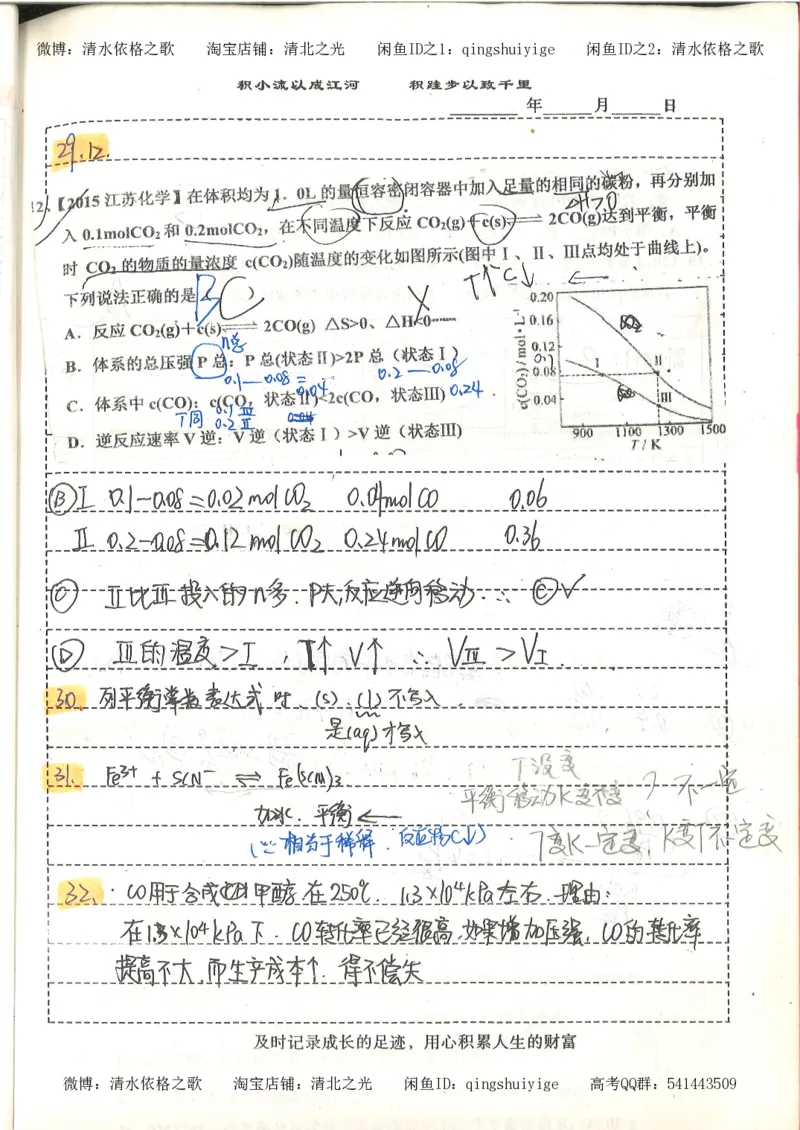 微博：清水依格之歌 淘宝店铺：清北之光 闲鱼ID之1：qingshuiyige 闲鱼ID之2：清水依格之歌
积小流以成江河 积跬步以致千里
年 月 日
29.12.
12.【2015江苏化学】在体积均为1.0L的量恒容密闭容器中加入足量的相同的碳粉，再分别加
△H>0
入0.1molCO₂和0.2molCO₂，在不同温度下反应CO₂(g)+c(s)⇌2CO(g)达到平衡，平衡
时CO₂的物质的量浓度c(CO₂)随温度的变化如图所示(图中Ⅰ、Ⅱ、Ⅲ点均处于曲线上)。
下列说法正确的是( ) BC
T↑ C↓ ←
A. 反应CO₂(g)+c(s)⇌2CO(g) △S>0、△H<0 ×
n总
B. 体系的总压强P总：P总(状态Ⅱ)>2P总（状态Ⅰ）
0.1—0.08= 0.04 0.2—0.08
C. 体系中c(CO)：c(CO，状态Ⅱ)<2c(CO，状态Ⅲ) 0.24.
T同 0.1 Ⅲ
0.2 Ⅱ
D. 逆反应速率V逆：V逆（状态Ⅰ）>V逆（状态Ⅲ)
c(CO₂)/mol·L⁻¹
0.20
0.16
0.12
0.08
0.04
Ⅰ Ⅱ Ⅲ
900 1100 1300 1500
T / K
Ⓑ Ⅰ 0.1-0.08=0.02mol CO₂ 0.04mol CO 0.06
Ⅱ 0.2-0.08=0.12 mol CO₂ 0.24mol CO 0.36
Ⓒ Ⅱ比Ⅲ投入的n多. P大,反应逆向移动. ∴ Ⓒ✓
Ⓓ Ⅲ的温度>Ⅰ, T↑ V↑ ∴ VⅢ > VⅠ.
30. 列平衡常数表达式时. (s). (l) 不写入.
是(aq)才写入
31. Fe³⁺ + SCN⁻ ⇌ Fe(SCN)₃
T没变
平衡移动K变不变 ? 不一定
加水. 平衡 ←
(∵ 相当于稀释. 反应物C↓)
T变K一定变, K变T不一定变
32. · CO用于合成甲醇在250℃. 1.3×10⁴kPa左右. 理由:
在1.3×10⁴kPa下. CO转化率已经很高. 如果增加压强. CO的转化率
提高不大,而生产成本↑. 得不偿失
及时记录成长的足迹，用心积累人生的财富
微博：清水依格之歌 淘宝店铺：清北之光 闲鱼ID：qingshuiyige 高考QQ群：541443509